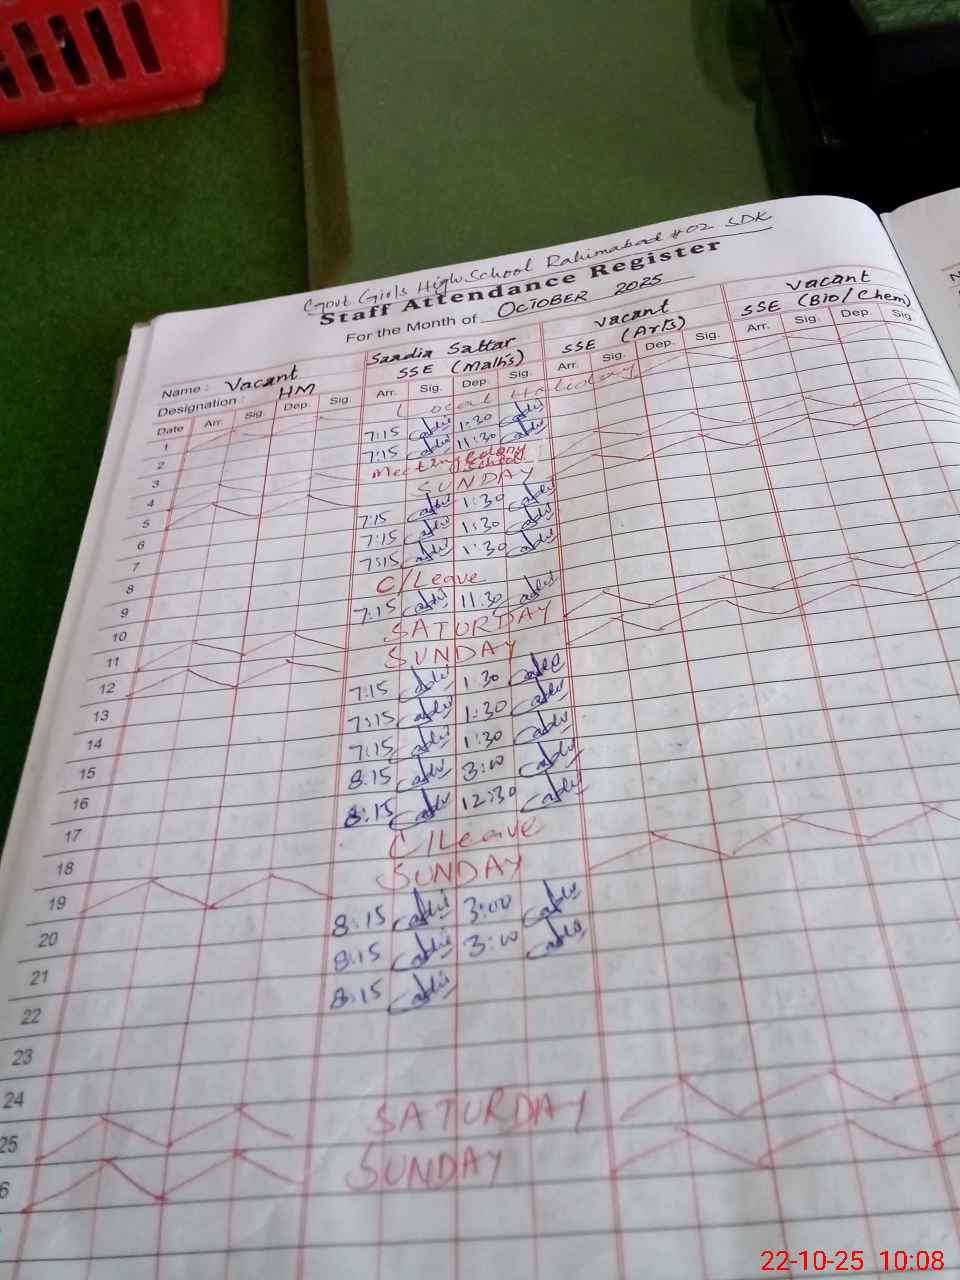 Govt Girls High School Rahimabad #02 SDK
Staff Attendance Register
For the Month of OCTOBER 2025
Name : Vacant Saadia Sattar Vacant Vacant
Designation : HM SSE (Maths) SSE (Arts) SSE (Bio/Chem)
Date Arr. Sig. Dep. Sig. Arr. Sig. Dep. Sig. Arr. Sig. Dep. Sig. Arr. Sig. Dep. Sig.
1 Local Holiday
2 7:15 1:30
3 7:15 11:30
4 Meeting Colony School
5 SUNDAY
6 7:15 1:30
7 7:15 1:30
8 7:15 1:30
9 C/Leave
10 7:15 11:30
11 SATURDAY
12 SUNDAY
13 7:15 1:30
14 7:15 1:30
15 7:15 1:30
16 8:15 3:00
17 8:15 12:30
18 C/Leave
19 SUNDAY
20 8:15 3:00
21 8:15 3:00
22 8:15
23
24
25 SATURDAY
6 SUNDAY
22-10-25 10:08